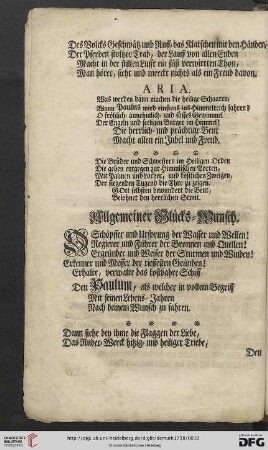 Des Volcks Geschwätz und Russ, das Klatschen mit den Händen,
Der Pferden stoltzer Trab, der Lauff von allen Enden
Macht in der stillen Lufft ein süß verwirrten Thon,
Man höret, sieht und merckt nichts als ein Freud davon.
ARIA.
Was werden dann machen die heilige Schaaren,
Wann Paulus wird einstens ins Himmelreich fahren?
O fröhlich, annehmlich, und süsses Getümmel
Der Englen und seeligen Burger im Himmel!
Die herrlich- und prächtige Beut
Macht allen ein Jubel und Freud.
Die Brüder und Schwestern im heiligen Orden
Die
zur Himmlischen Pforten,
Mit Palmen und
und köstlichen Zweigen,
Der siegenden Tugend die Thor zu zeigen.
Gott selbsten bewundert die Beut,
Belohnet den herrlichen Streit.
Allgemeiner Glücks-Wunsch.
Schöpffer und Ursprung der Wasser und Wellen!
Regierer und Führer der Bronnen und Quellen!
Ergründer und Meister der Stürmen und Winden!
Erkenner und Messer der tieffesten Gründen!
Erhalte, verwalte das kostbahre Schiff
Den Paulum, als welcher in vollem Begriff
Mit seinen Lebens-Jahren
Nach deinem Wunsch zu fahren.
Dann siehe bey ihme die Flaggen der Liebe,
Das Ruder-Werck hitzig- und heiliger Triebe,
Den
http://digi.ub.uni-heidelberg.de/diglit/demuth1738/0010
© Universitätsbibliothek Heidelberg
UNIVERSITÄTS-
BIBLIOTHEK
HEIDELBERG
gefördert durch die
DFG